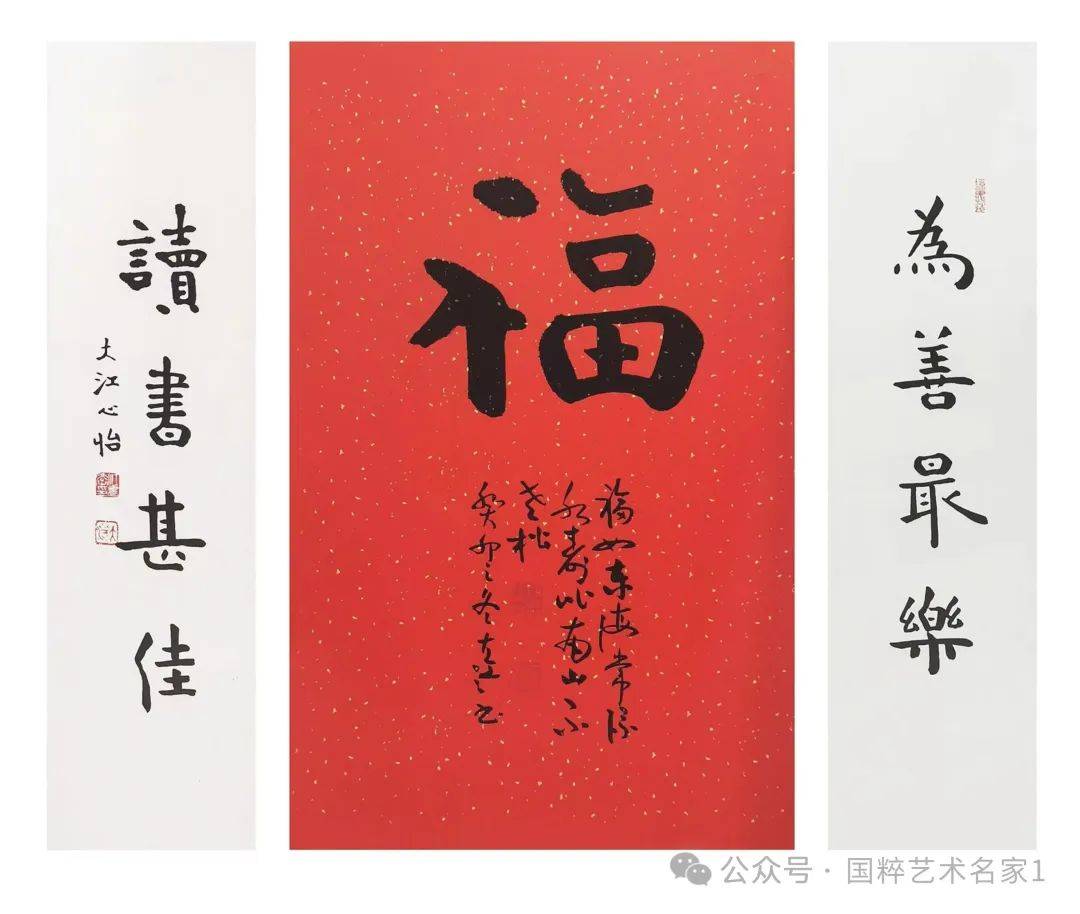 為善最樂
福
福如东海常流
水寿比南山不
老松
癸卯冬大江书
讀書甚佳
大江心怡
公众号 · 国粹艺术名家1